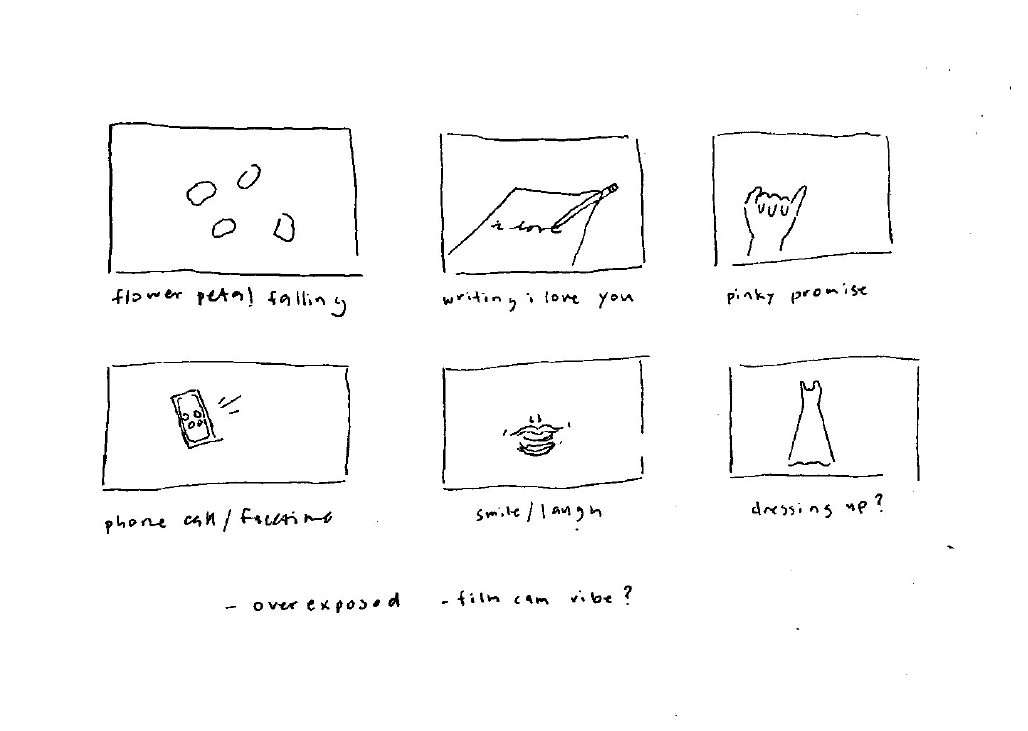 flower petal falling
i love
writing i love you
pinky promise
phone call/facetime
smile/laugh
dressing up?
- overexposed - film cam vibe?